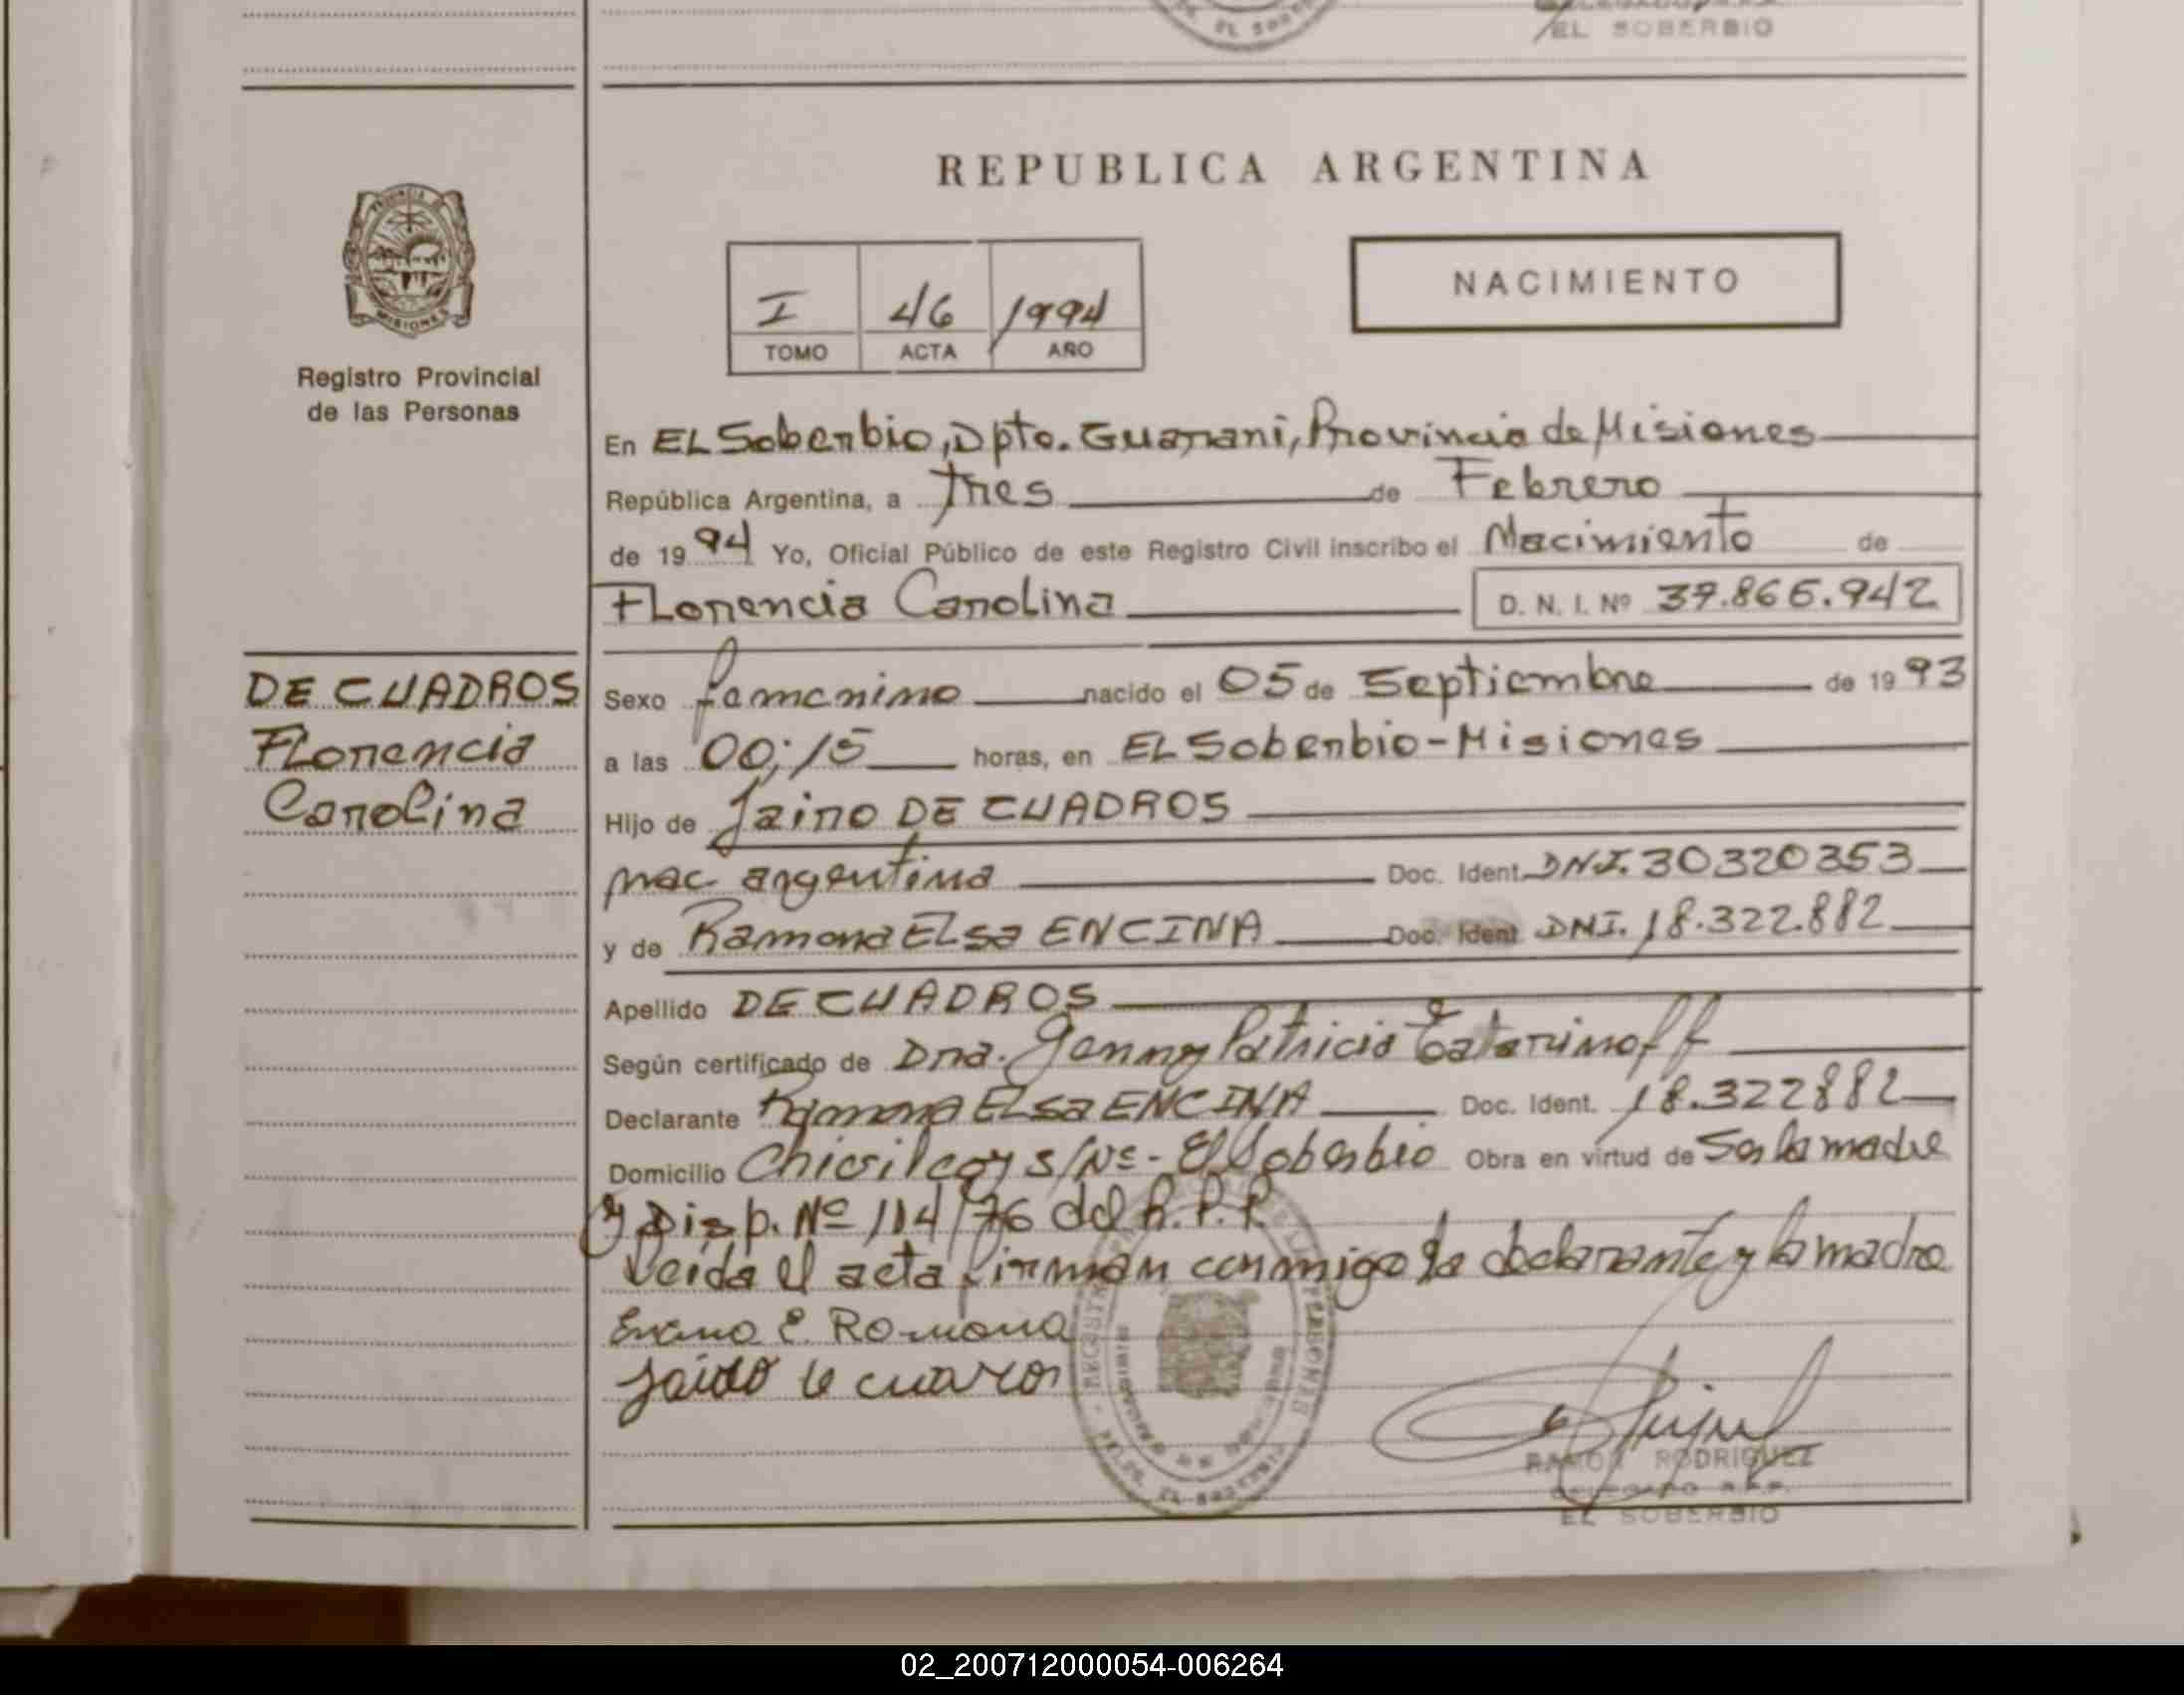 EL SOBERBIO
REPUBLICA ARGENTINA
PROVINCIA DE
MISIONES
Registro Provincial
de las Personas
I 46 1994
TOMO ACTA AÑO
NACIMIENTO
En EL Soberbio, Dpto. Guarani, Provincia de Misiones
República Argentina, a tres de Febrero
de 1994 Yo, Oficial Público de este Registro Civil inscribo el Nacimiento de
Florencia Carolina D. N. I. Nº 37.865.942
DE CUADROS
Florencia
Carolina
Sexo femenino nacido el 05 de Septiembre de 1993
a las 00;15 horas, en EL Soberbio-Misiones
Hijo de Jairo DE CUADROS
nac. argentina Doc. Ident. DNI. 30320353
y de Ramona Elsa ENCINA Doc. Ident DNI. 18.322.882
Apellido DE CUADROS
Según certificado de Dña. Jenny Patricia
Declarante Ramona Elsa ENCINA Doc. Ident. 18.322882
Domicilio Chivilcoy s/Nº - El Soberbio Obra en virtud de Ser la madre
y Disp. Nº 114/76 del R.P.P.
Leida el acta firman conmigo la declarante y la madre
E. Romona
RAMON RODRIGUEZ
DELEGADO R.P.P.
EL SOBERBIO
02_200712000054-006264